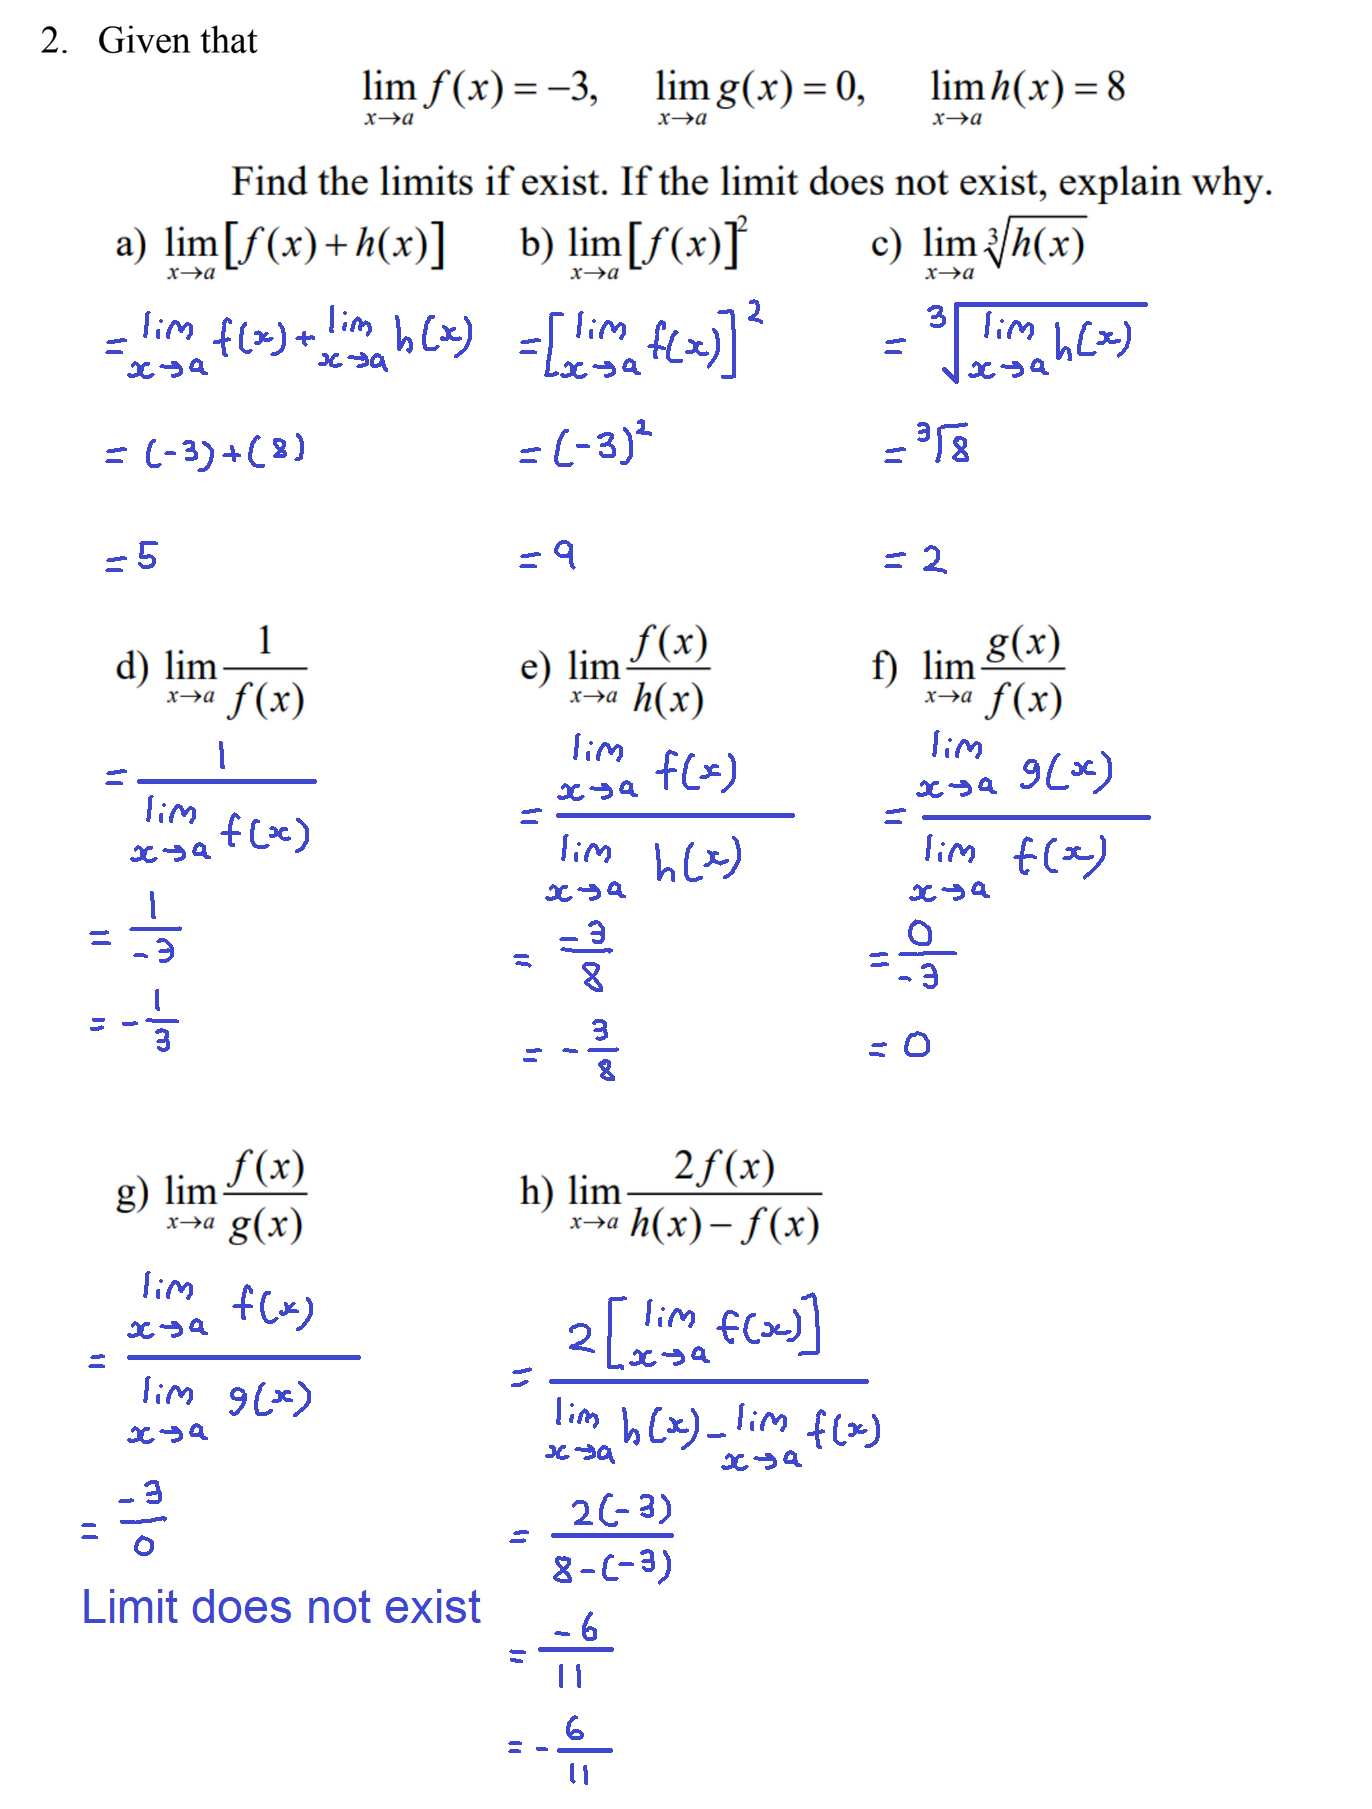 2. Given that
lim_{x→a} f(x) = −3, lim_{x→a} g(x) = 0, lim_{x→a} h(x) = 8
Find the limits if exist. If the limit does not exist, explain why.
a) lim_{x→a} [f(x) + h(x)]
= lim_{x→a} f(x) + lim_{x→a} h(x)
= (-3) + (8)
= 5
b) lim_{x→a} [f(x)]²
= [lim_{x→a} f(x)]²
= (-3)²
= 9
c) lim_{x→a} ∛h(x)
= ∛(lim_{x→a} h(x))
= ∛8
= 2
d) lim_{x→a} 1/f(x)
= 1 / lim_{x→a} f(x)
= 1/-3
= -1/3
e) lim_{x→a} f(x)/h(x)
= lim_{x→a} f(x) / lim_{x→a} h(x)
= -3/8
= -3/8
f) lim_{x→a} g(x)/f(x)
= lim_{x→a} g(x) / lim_{x→a} f(x)
= 0/-3
= 0
g) lim_{x→a} f(x)/g(x)
= lim_{x→a} f(x) / lim_{x→a} g(x)
= -3/0
Limit does not exist
h) lim_{x→a} 2f(x)/(h(x) − f(x))
= 2[lim_{x→a} f(x)] / (lim_{x→a} h(x) - lim_{x→a} f(x))
= 2(-3)/(8-(-3))
= -6/11
= -6/11